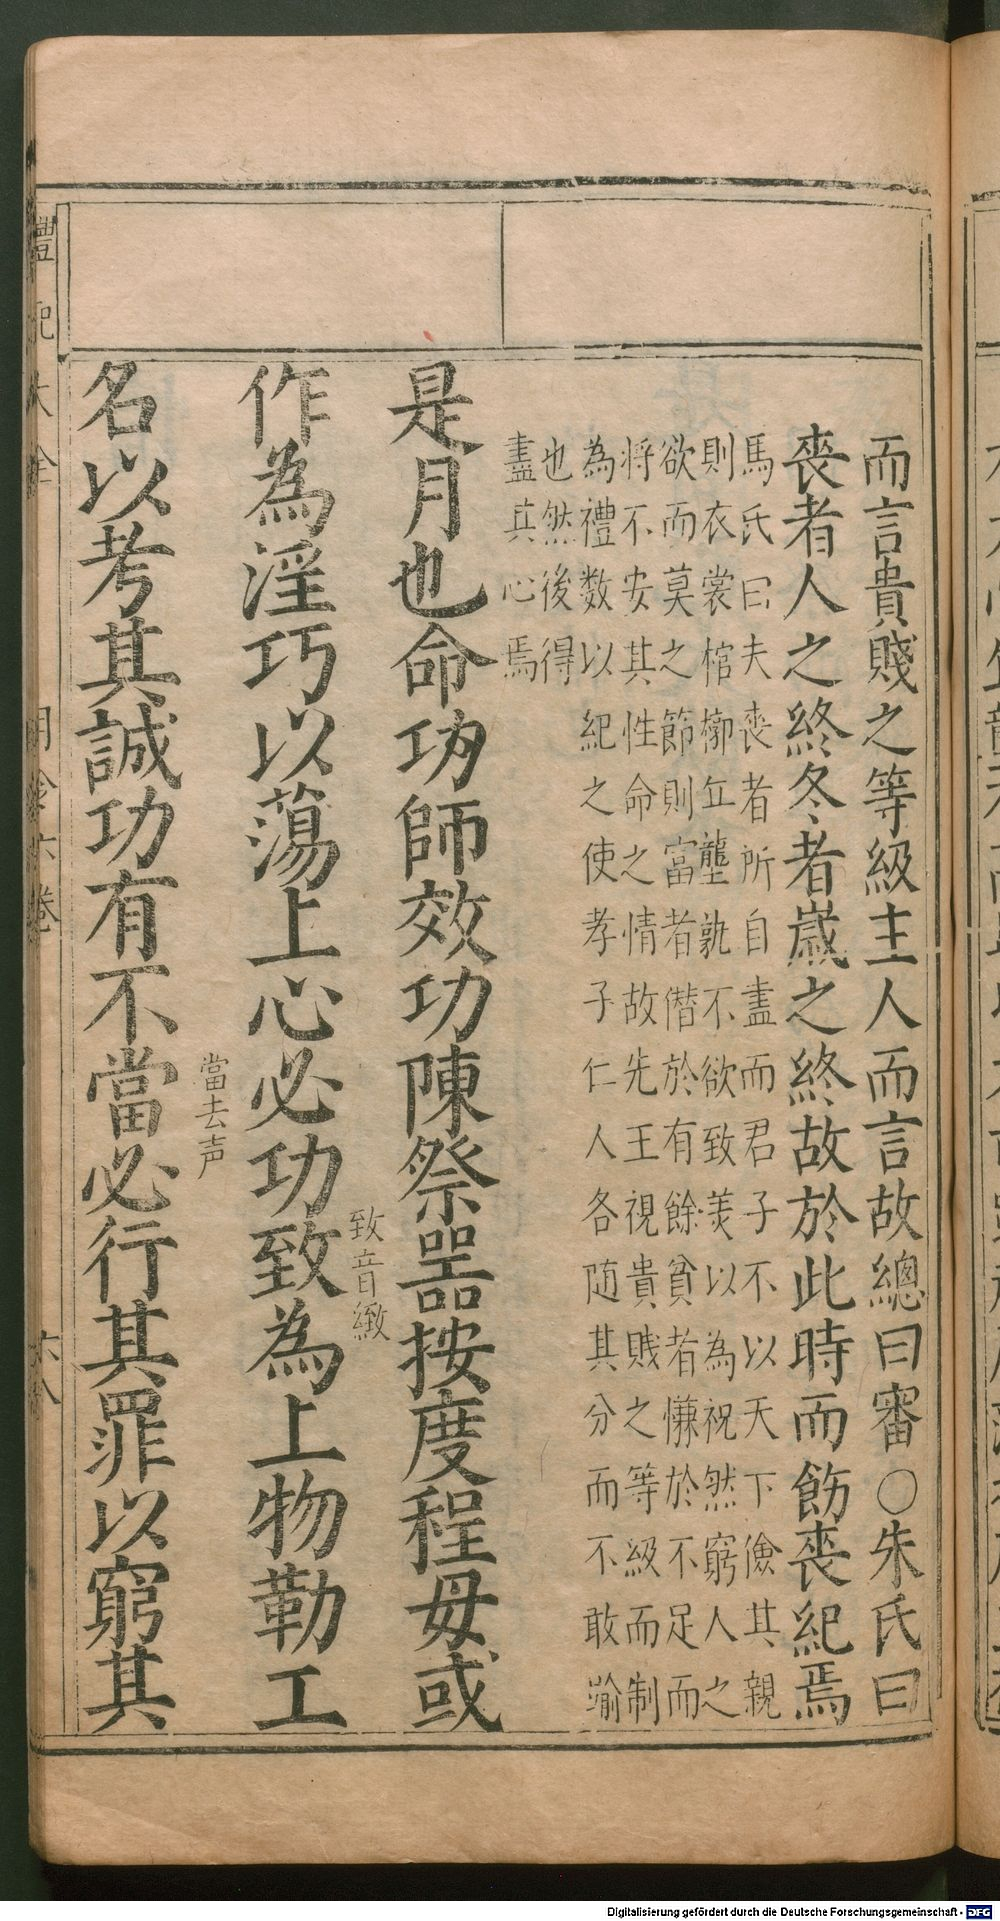 而言貴賤之等級主人而言故總曰審○朱氏曰
喪者人之終冬者嵗之終故於此時而飭喪紀焉
馬氏曰夫喪者所自盡而君子不以天下儉其親
則衣裳棺槨丘壟孰不欲致羙以為祝然窮人之
欲而莫之節則富者僭於有餘貧者慊於不足而
将不安其性命之情故先王視貴賎之等級而制
為禮数以紀之使孝子仁人各随其分而不敢踰
也然後得
盡其心焉
是月也命功師效功陳祭噐按度程毋或
致音緻
作為淫巧以蕩上心必功致為上物勒工
當去声
名以考其誠功有不當必行其罪以窮其
禮記大全
月令六卷
六八
Digitalisierung gefördert durch die Deutsche Forschungsgemeinschaft - DFG